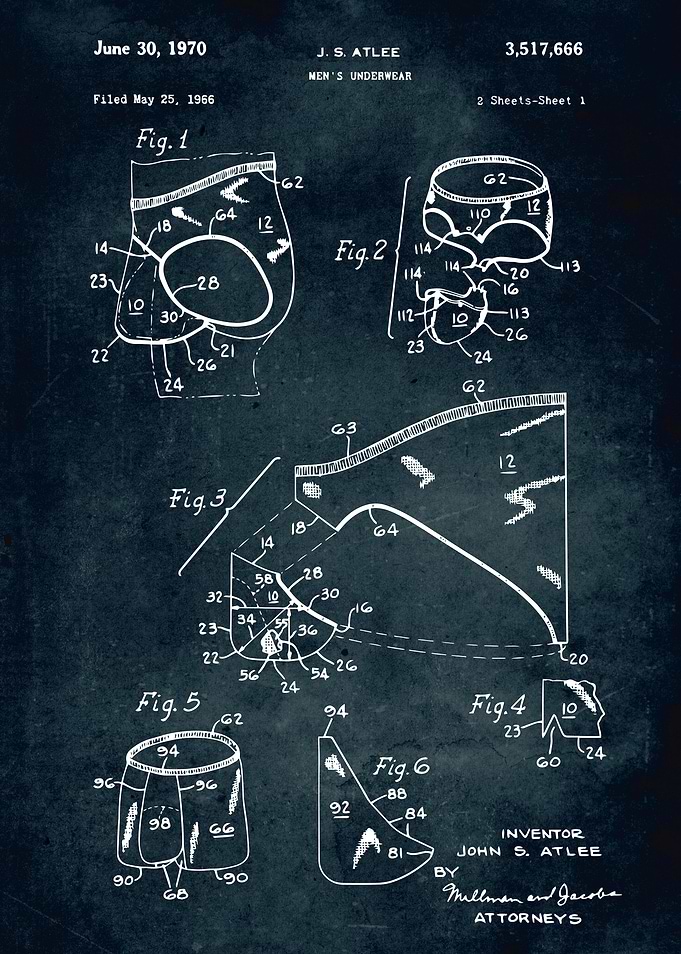 June 30, 1970
J. S. ATLEE
3,517,666
MEN'S UNDERWEAR
Filed May 25, 1966
2 Sheets-Sheet 1
Fig. 1
62
64
18
12
14
23
28
10
30
22
21
26
24
Fig. 2
62
110
12
114
114
20
113
114
16
112
10
113
23
26
24
62
63
12
Fig. 3
18
64
14
58
28
32
10
30
16
23
34
55
36
22
26
20
56
54
24
Fig. 4
10
23
24
60
Fig. 5
62
94
96
96
98
66
90
90
68
94
Fig. 6
88
92
84
81
INVENTOR
JOHN S. ATLEE
BY
Millman and Jacobs
ATTORNEYS